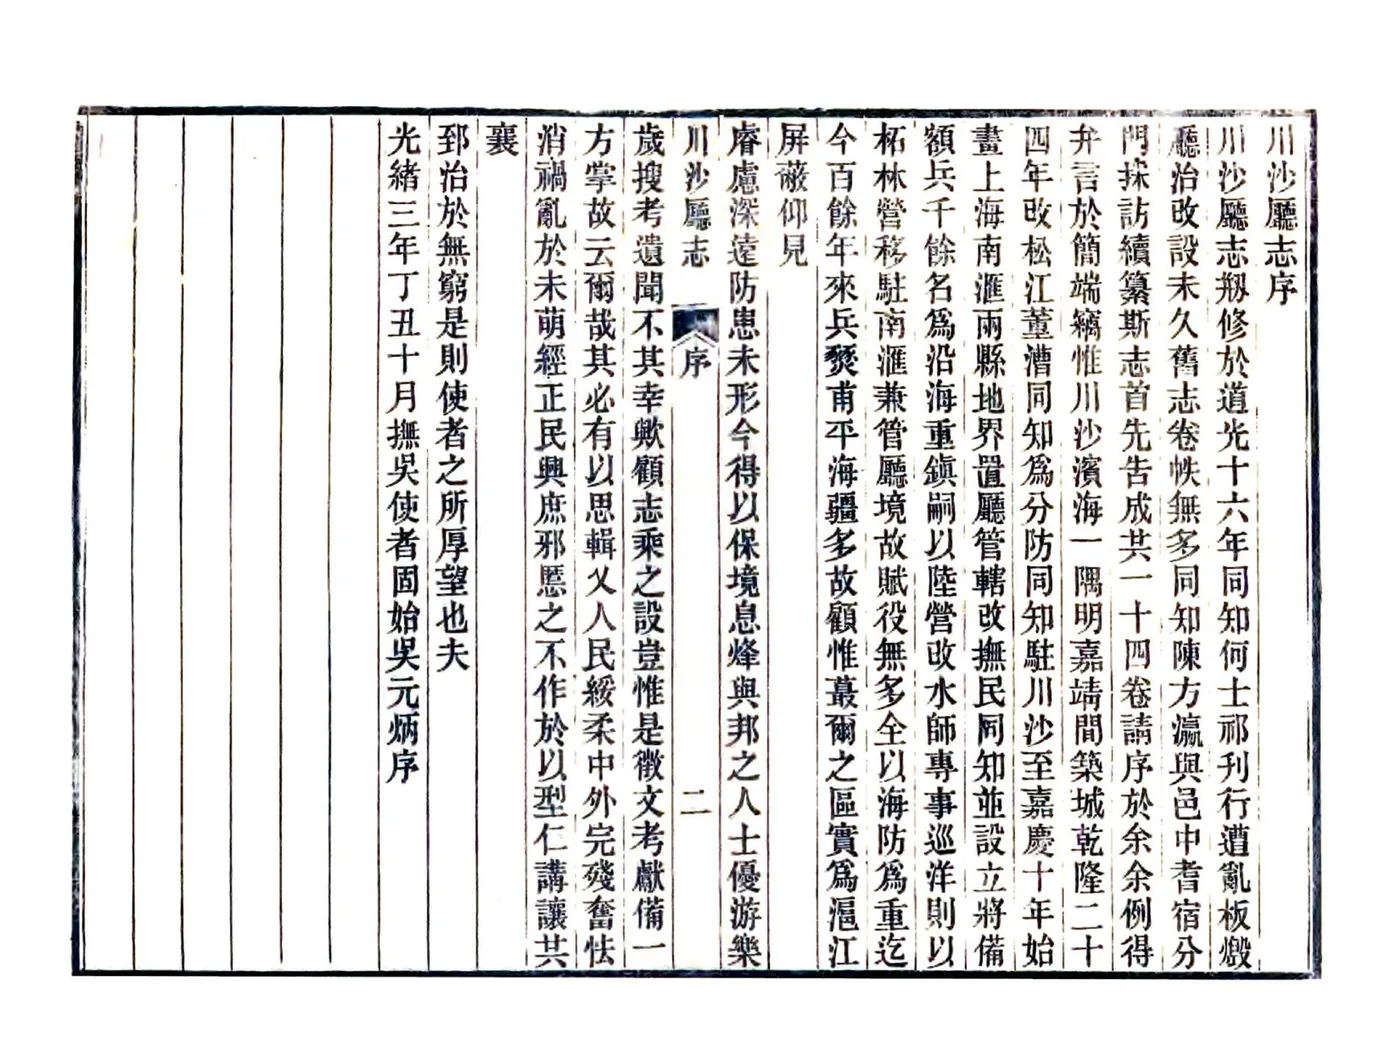 川沙廳志序
川沙廳志刱修於道光十六年同知何士祁刊行遭亂板燬
廳治改設未久舊志卷帙無多同知陳方瀛與邑中耆宿分
門採訪續纂斯志首先告成共一十四卷請序於余余例得
弁言於簡端竊惟川沙濱海一隅明嘉靖間築城乾隆二十
四年改松江董漕同知爲分防同知駐川沙至嘉慶十年始
畫上海南滙兩縣地界置廳管轄改撫民同知並設立將備
額兵千餘名爲沿海重鎭嗣以陸營改水師專事巡洋則以
柘林營移駐南滙兼管廳境故賦役無多全以海防爲重迄
今百餘年來兵燹甫平海疆多故顧惟蕞爾之區實爲滬江
屏蔽仰見
睿慮深遠防患未形今得以保境息烽與邦之人士優游樂
川沙廳志
序
二
歲搜考遺聞不其幸歟顧志乘之設豈惟是徵文考獻備一
方掌故云爾哉其必有以思輯乂人民綏柔中外完殘奮怯
消禍亂於未萌經正民興庶邪慝之不作於以型仁講讓共
襄
郅治於無窮是則使者之所厚望也夫
光緒三年丁丑十月撫吳使者固始吳元炳序